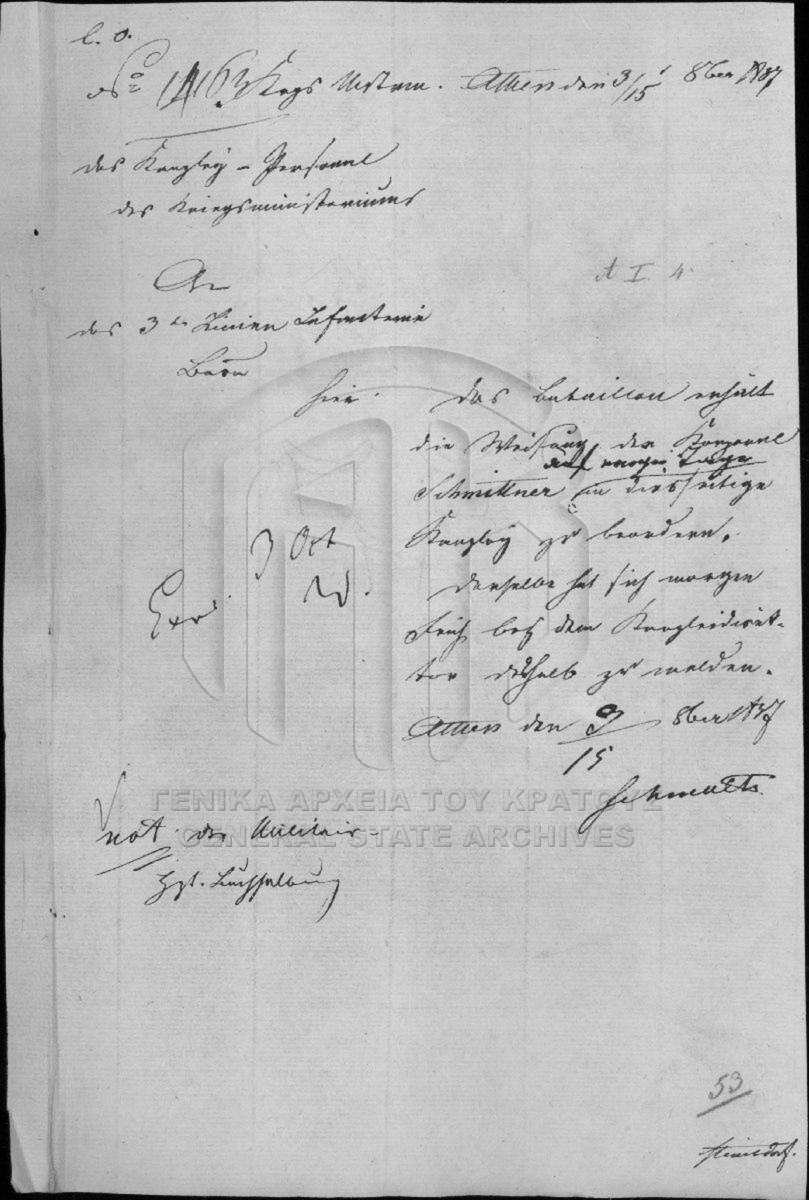 l. o.
No 14163 Athen den 3/15 8ber 1837
das Kanzley-Personal
des Kriegsministeriums
An
das 3te Linien Infanterie
Baon
hier.
A I. 4.
Das Bataillon erhält
die Weisung den Korporal
auf einige Tage
Schmittner in diesseitige
Kanzley zu beordern.
Derselbe hat sich morgen
Früh bey dem Kanzleidirek-
tor deshalb zu melden.
Athen den 3/15 8ber 1837
Schmaltz.
3 Oct
Exp.
not. der Militair-
ΓΕΝΙΚΑ ΑΡΧΕΙΑ ΤΟΥ ΚΡΑΤΟΥΣ
GENERAL STATE ARCHIVES
53